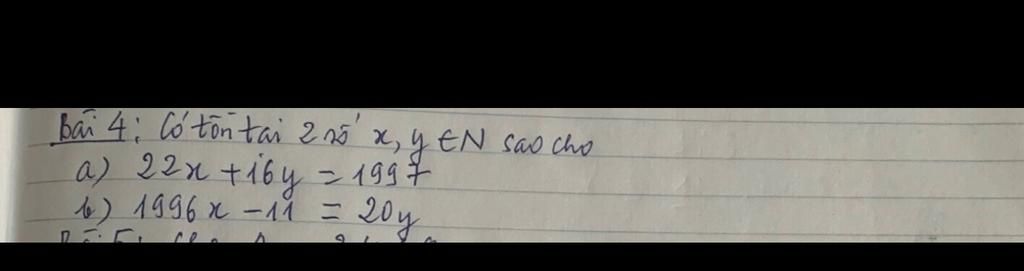 Bài 4: Có tồn tại 2 số x, y ∈ N sao cho
a) 22x + 16y = 1997
b) 1996x - 11 = 20y